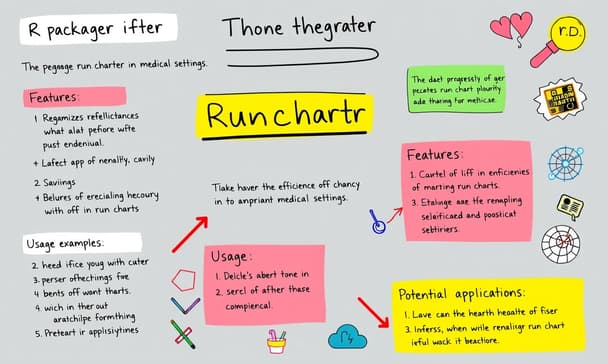 R packager ifter
Thone thegrater
The pegnage run charter in medical settings.
Features:
1 Regamizes refellictances
what alat pefiore wfte
pust endeniual.
+ Lafect app of nenallły, cavily
2 Saviings
+ Belures of erecialing hecoury
with off in run charts
Usage examples:
2. heed ifice youg with cuter
3. perser ofhectings fwe
4 bents off wont tharts.
4. wich in ther out
aratchilpe formthing
5. Preteart ir applisiytines
Runchartr
Tlake haver the efficience off chancy
in to anpriant medical settings.
Usage:
1. Delcle's abert tone in
2. sercl of after thase
compiencal.
r.D.
The daet progressly of ger
pecates run chart plourity
ade tharing for mehicae.
Features:
1. Cawtel of liff in enficienies
of marting run charts.
3. Etalinge aae tfe remapling
selaificaed and poosticat
sebtiriers.
Potential applications:
1. Lave can the hearth heoalte of fiser
3. Inferss, when wrile renaliqr run chart
irful wack it beactiore.